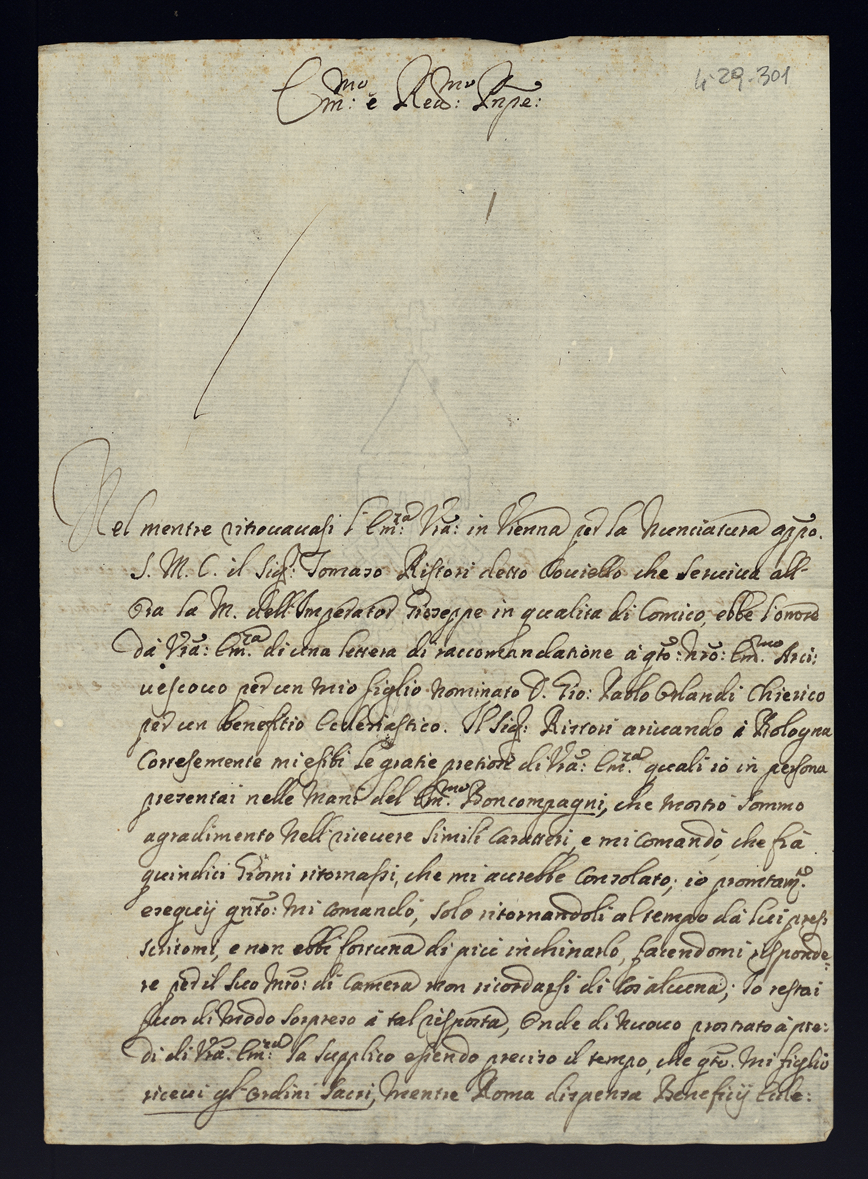 4-29-301
Em:mo è Reu:mo Prnpe:
Nel mentre ritrouauasi l'Em:za Vra: in Vienna per la Nunciatura appo.
S. M. C. il Sig:r Tomaso Ristori detto Couiello che seruiua all'
ora la M. dell'Imperator Gioseppe in qualita di Comico, ebbe l'onore
dà Vra: Em:za di una lettera di raccomandatione à qto: nro: Em:mo Arci:
uescouo per un mio figlio nominato D. Gio: Paolo Orlandi Chierico
per un benefitio Eccleriastico. Il Sig:r Ristori ariuando à Bologna
Cortesemente mi esibi le gratie pretiose di Vra: Em:za quali io in persona
presentai nelle Mani del Em:mo Boncompagni, che mostrò sommo
agradimento nell riceuere simili Caratteri, e mi comandò, che frà
quindici Giorni ritornassi, che mi aurebbe Consolato; io promtam:e
esequij qnto: mi comandò, solo ritornandoli al tempo dà lui pres
scritomi, e non ebbi fortuna di più inchinarlo, facendomi risponde:
re per il suo Mro: di Camera non ricordarsi di Cos'alcuna; Io restai
fuor di modo sorpreso à tal risposta, Onde di nuouo prostrato à pie:
di di Vra: Em:za la supplico essendo preciso il tempo, che qto. mi figlio
riceui gl'Ordini Sacri, mentre Roma dispensa Beneficij Ecle: